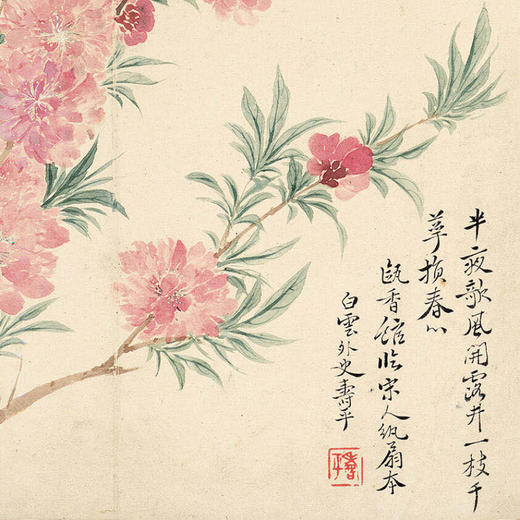 半夜歌風開露井一枝千
萼損春心
甌香館臨宋人紈扇本
白雲外史壽平
壽平